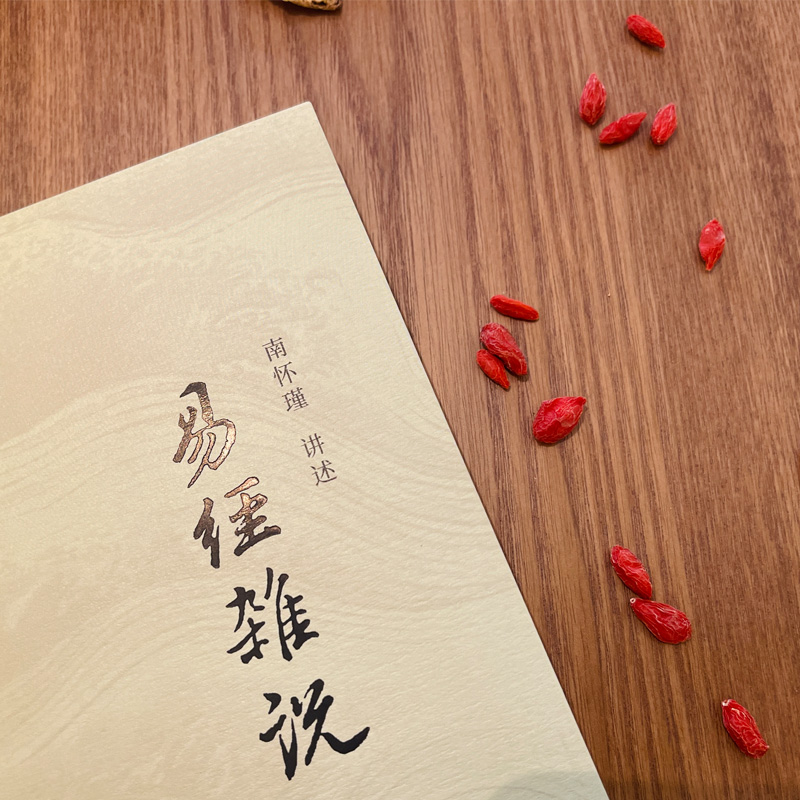 南怀瑾 讲述
易经雜说